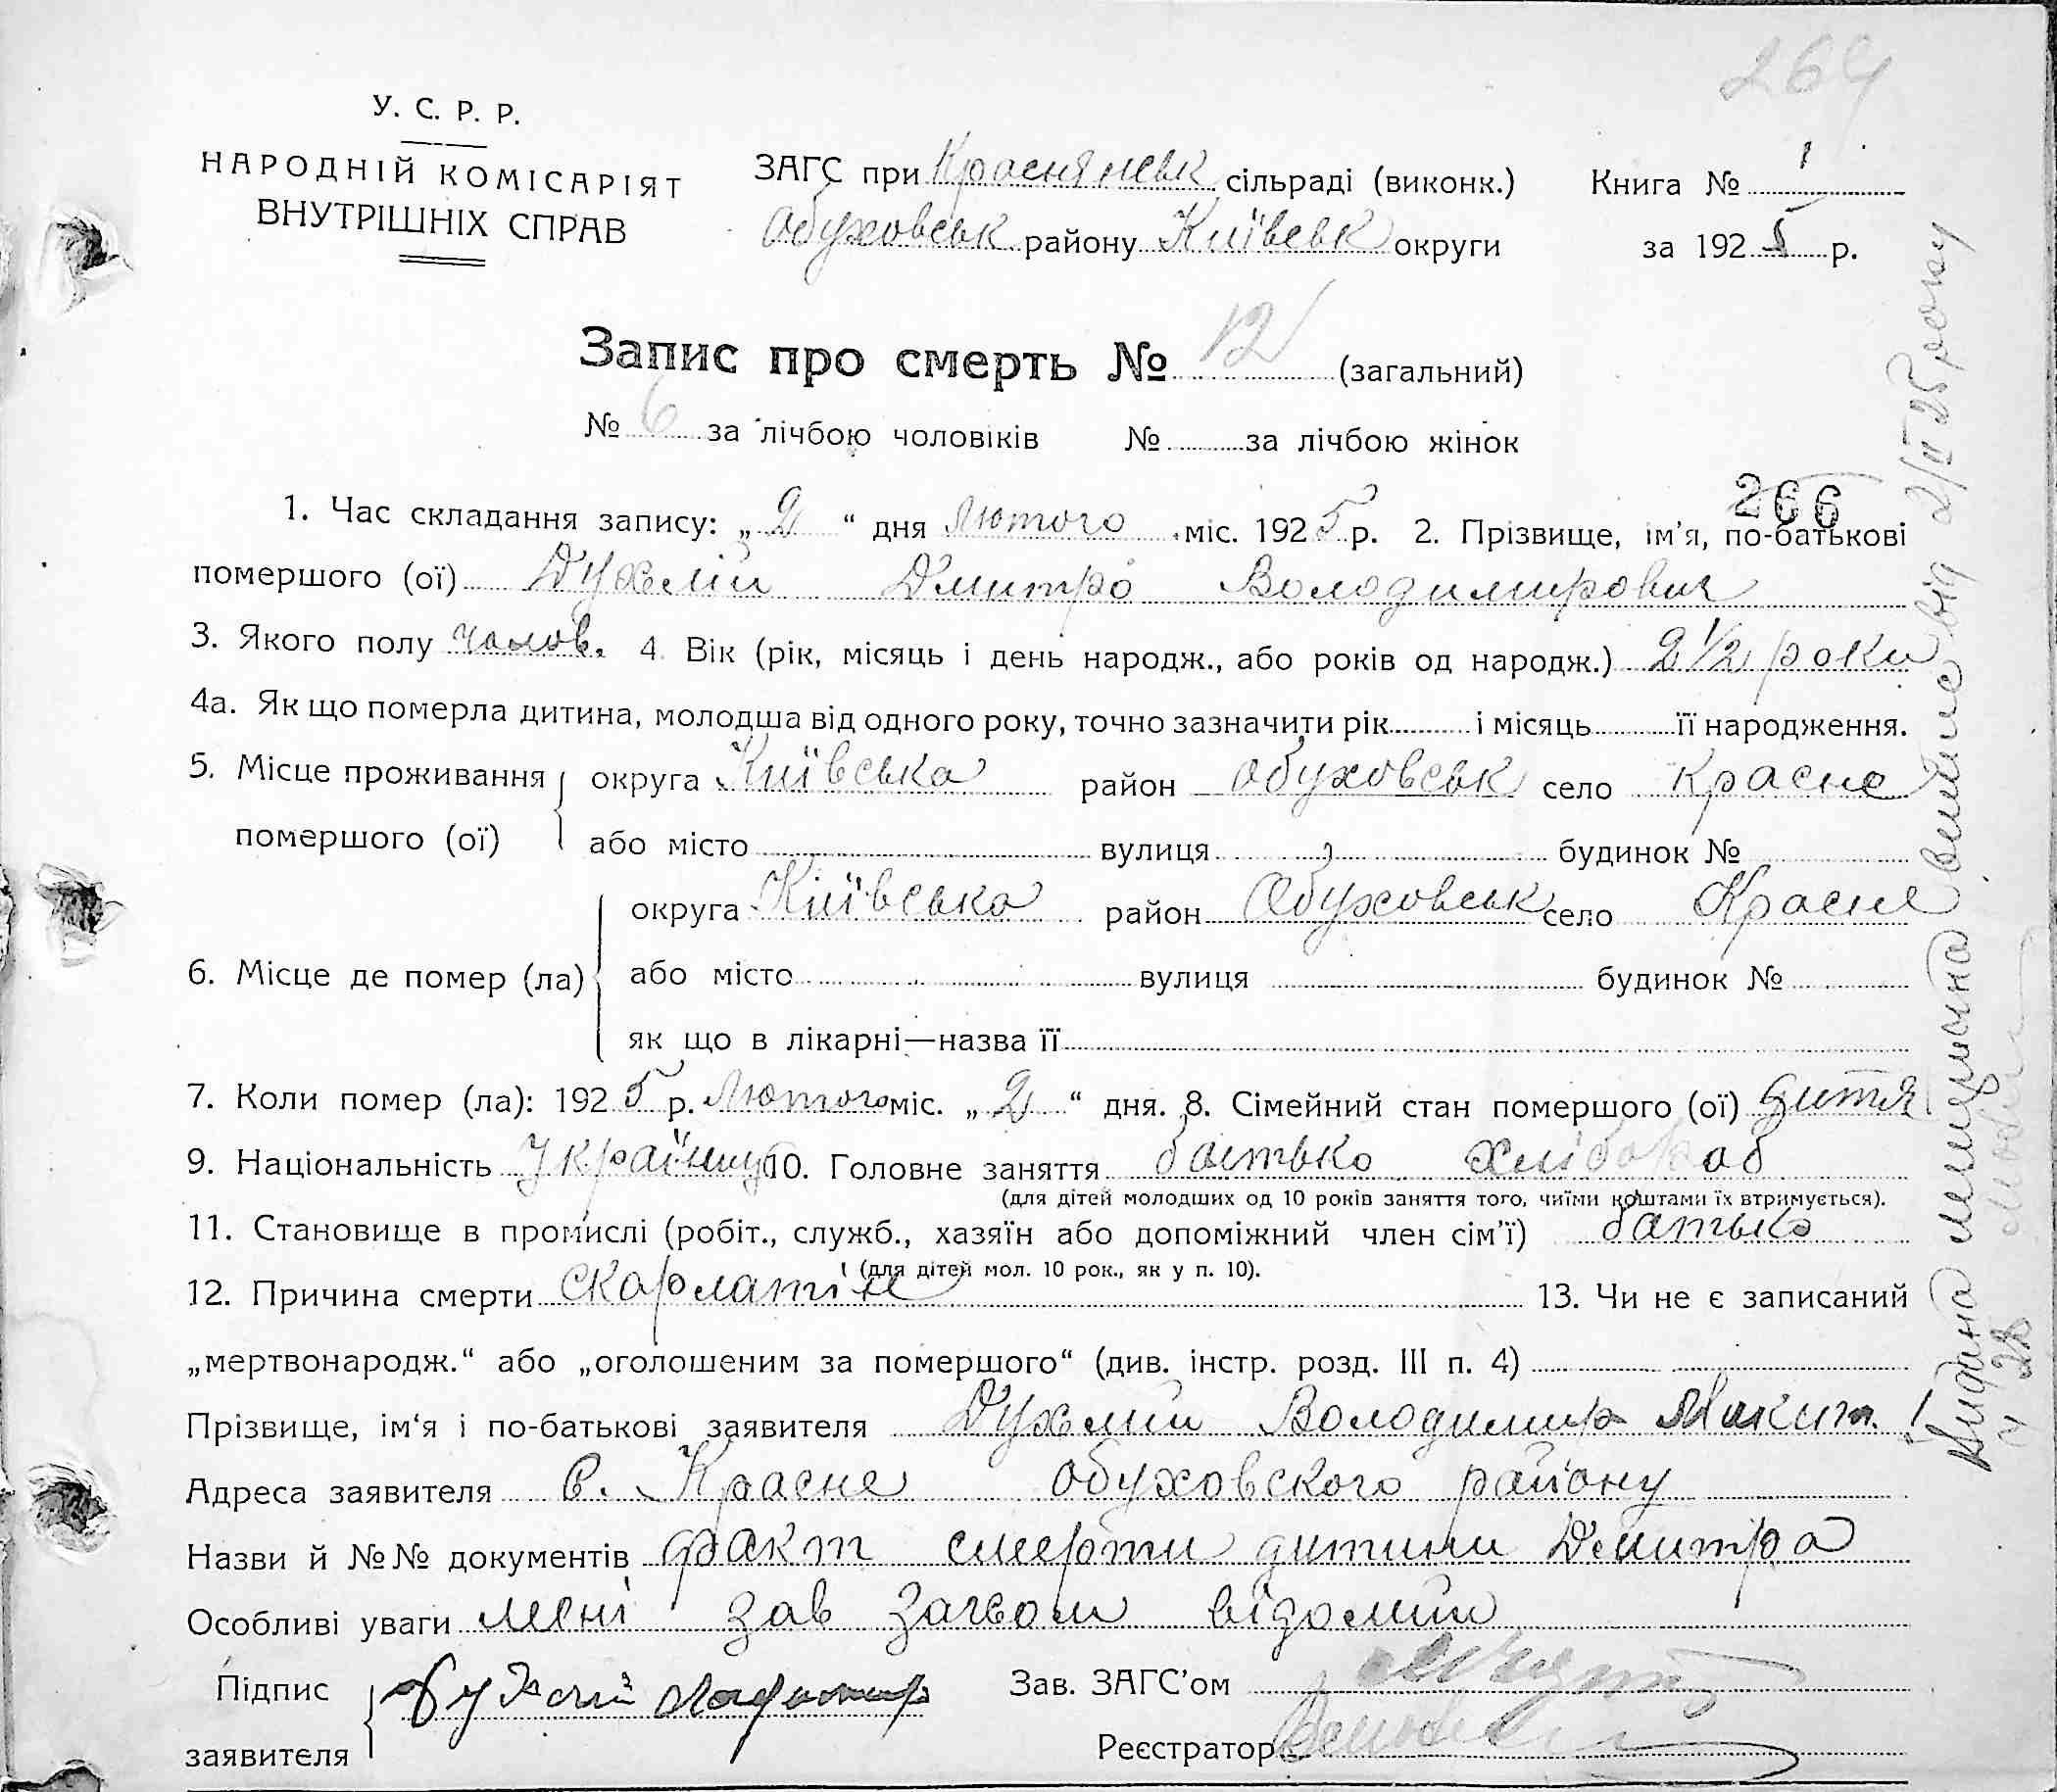 264
У. С. Р. Р.
НАРОДНІЙ КОМІСАРІЯТ
ВНУТРІШНІХ СПРАВ
ЗАГС при Краснянськ сільраді (виконк.)
Обуховськ району Київськ округи
Книга № 1
за 1925 р.
Запис про смерть № 12 (загальний)
№ 6 за лічбою чоловіків № за лічбою жінок
266
1. Час складання запису: „2“ дня Лютого міс. 1925 р. 2. Прізвище, ім'я, по-батькові
помершого (ої) Духмій Дмитро Володимирович
3. Якого полу чолов. 4. Вік (рік, місяць і день народж., або років од народж.) 2 1/2 роки
4а. Як що померла дитина, молодша від одного року, точно зазначити рік і місяць її народження.
5. Місце проживання округа Київська район Обуховськ село Красне
помершого (ої) або місто вулиця будинок №
округа Київська район Обуховськ село Красне
6. Місце де помер (ла) або місто вулиця будинок №
як що в лікарні—назва її
7. Коли помер (ла): 1925 р. Лютого міс. „2“ дня. 8. Сімейний стан помершого (ої) дитя
9. Національність Українць 10. Головне заняття батько хлібороб
(для дітей молодших од 10 років заняття того, чиїми коштами їх втримується).
11. Становище в промислі (робіт., служб., хазяїн або допоміжний член сім'ї) батько
(для дітей мол. 10 рок., як у п. 10).
12. Причина смерти скарлатіне 13. Чи не є записаний
„мертвонародж.“ або „оголошеним за помершого“ (див. інстр. розд. III п. 4)
Прізвище, ім'я і по-батькові заявителя Духмий Володимир
Адреса заявителя С. Красне Обуховського району
Назви й №№ документів Факт смерти дитини Дмитра
Особливі уваги мені зав Загсом відомий
Підпис
заявителя
Зав. ЗАГС'ом
Реєстратор
Видана від 2/II 25 року